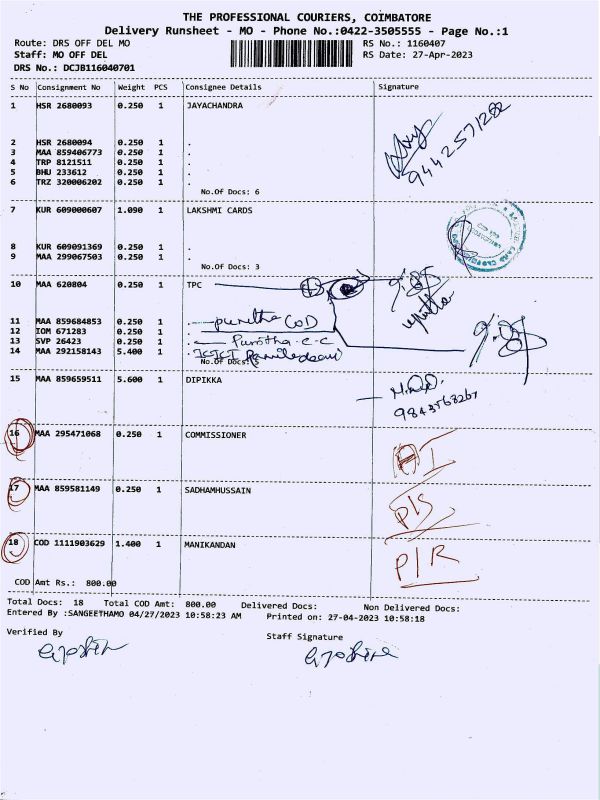 THE PROFESSIONAL COURIERS, COIMBATORE
Delivery Runsheet - MO - Phone No.:0422-3505555 - Page No.:1
Route: DRS OFF DEL MO RS No.: 1160407
Staff: MO OFF DEL RS Date: 27-Apr-2023
DRS No.: DCJB116040701
S No Consignment No Weight PCS Consignee Details Signature
1 HSR 2680093 0.250 1 JAYACHANDRA
9442571282
2 HSR 2680094 0.250 1 .
3 MAA 859406773 0.250 1 .
4 TRP 8121511 0.250 1 .
5 BHU 233612 0.250 1 .
6 TRZ 320006202 0.250 1 .
No.Of Docs: 6
7 KUR 609000607 1.090 1 LAKSHMI CARDS
8 KUR 609091369 0.250 1 .
9 MAA 299067503 0.250 1 .
No.Of Docs: 3
10 MAA 620804 0.250 1 TPC
11 MAA 859684853 0.250 1 . punitha COD
12 IOM 671283 0.250 1 .
13 SVP 26423 0.250 1 . Punitha-c-c
14 MAA 292158143 5.400 1 . ICICI
No.Of Docs: 5
15 MAA 859659511 5.600 1 DIPIKKA
9843568267
16 MAA 295471068 0.250 1 COMMISSIONER
17 MAA 859581149 0.250 1 SADHAMHUSSAIN P/S
18 COD 1111903629 1.400 1 MANIKANDAN P/R
COD Amt Rs.: 800.00
Total Docs: 18 Total COD Amt: 800.00 Delivered Docs: Non Delivered Docs:
Entered By :SANGEETHAMO 04/27/2023 10:58:23 AM Printed on: 27-04-2023 10:58:18
Verified By Staff Signature